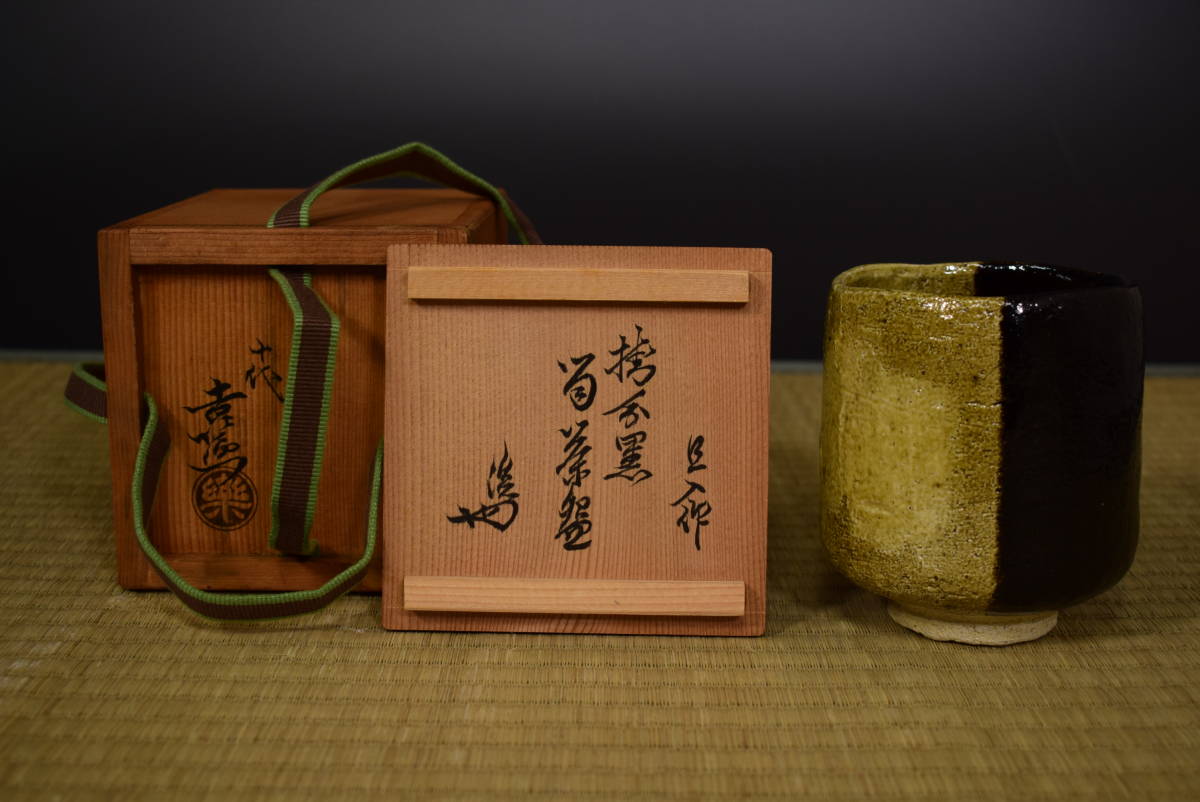 旦入作
掛分黒
筒茶盌
十代
吉左衛門
樂